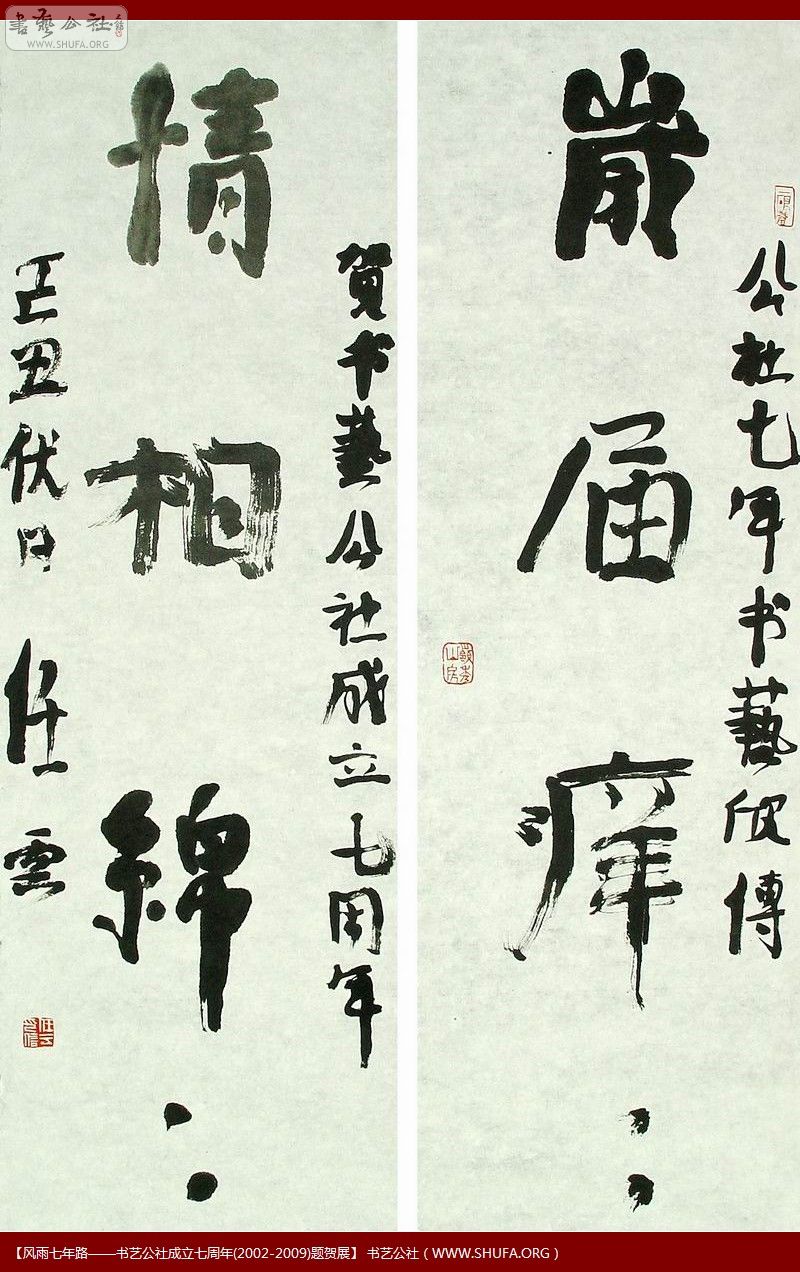 書藝公社
WWW.SHUFA.ORG
公社七年书藝欣傳
歲届痒〻
賀书藝公社成立七周年
情相綿〻
己丑伏日 任雲
【风雨七年路——书艺公社成立七周年(2002-2009)题贺展】 书艺公社（WWW.SHUFA.ORG）